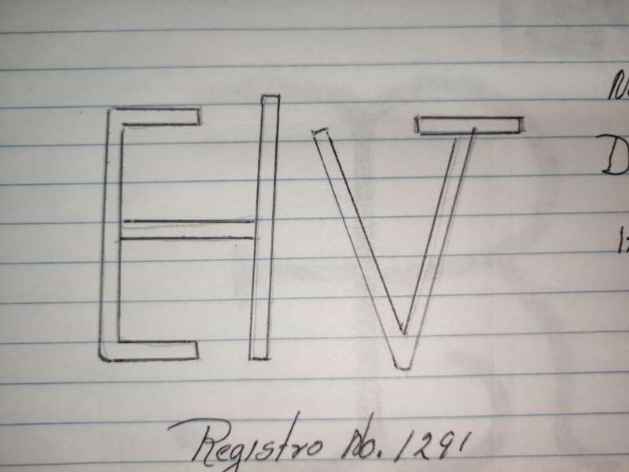 EIV
Registro No. 1291